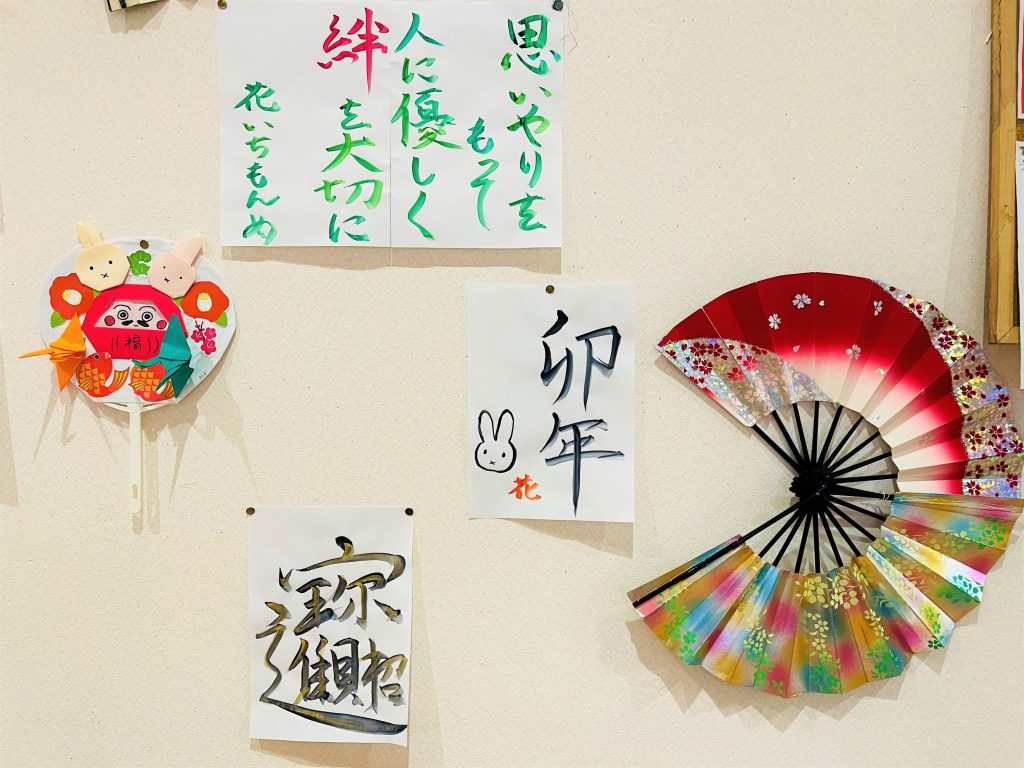 思いやりを
もって
人に優しく
絆を大切に
花いちもんめ
卯年
花
招財進寶